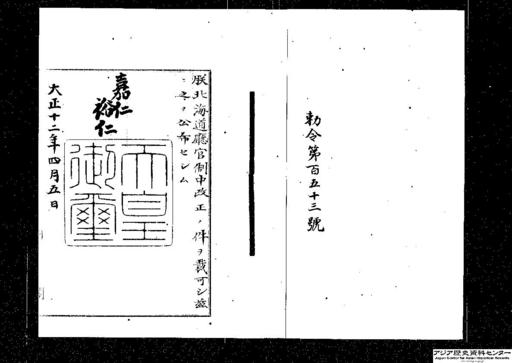 勅令第百五十三號
朕北海道廳官制中改正ノ件ヲ裁可シ茲
ニ之ヲ公布セシム
嘉仁
裕仁
天皇
御璽
大正十二年四月五日
アジア歴史資料センター
Japan Center for Asian Historical Records